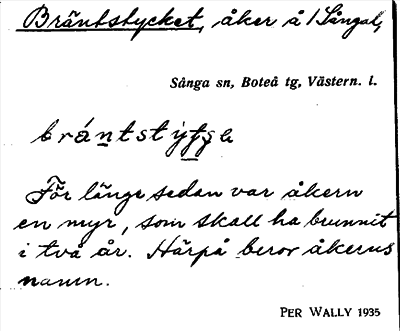 Bräntstycket, åker å 1 Sångal,
Sånga sn, Boteå tg, Västern. l.
För länge sedan var åkern
en myr, som skall ha brunnit
i två år. Härpå beror åkerns
namn.
PER WALLY 1935